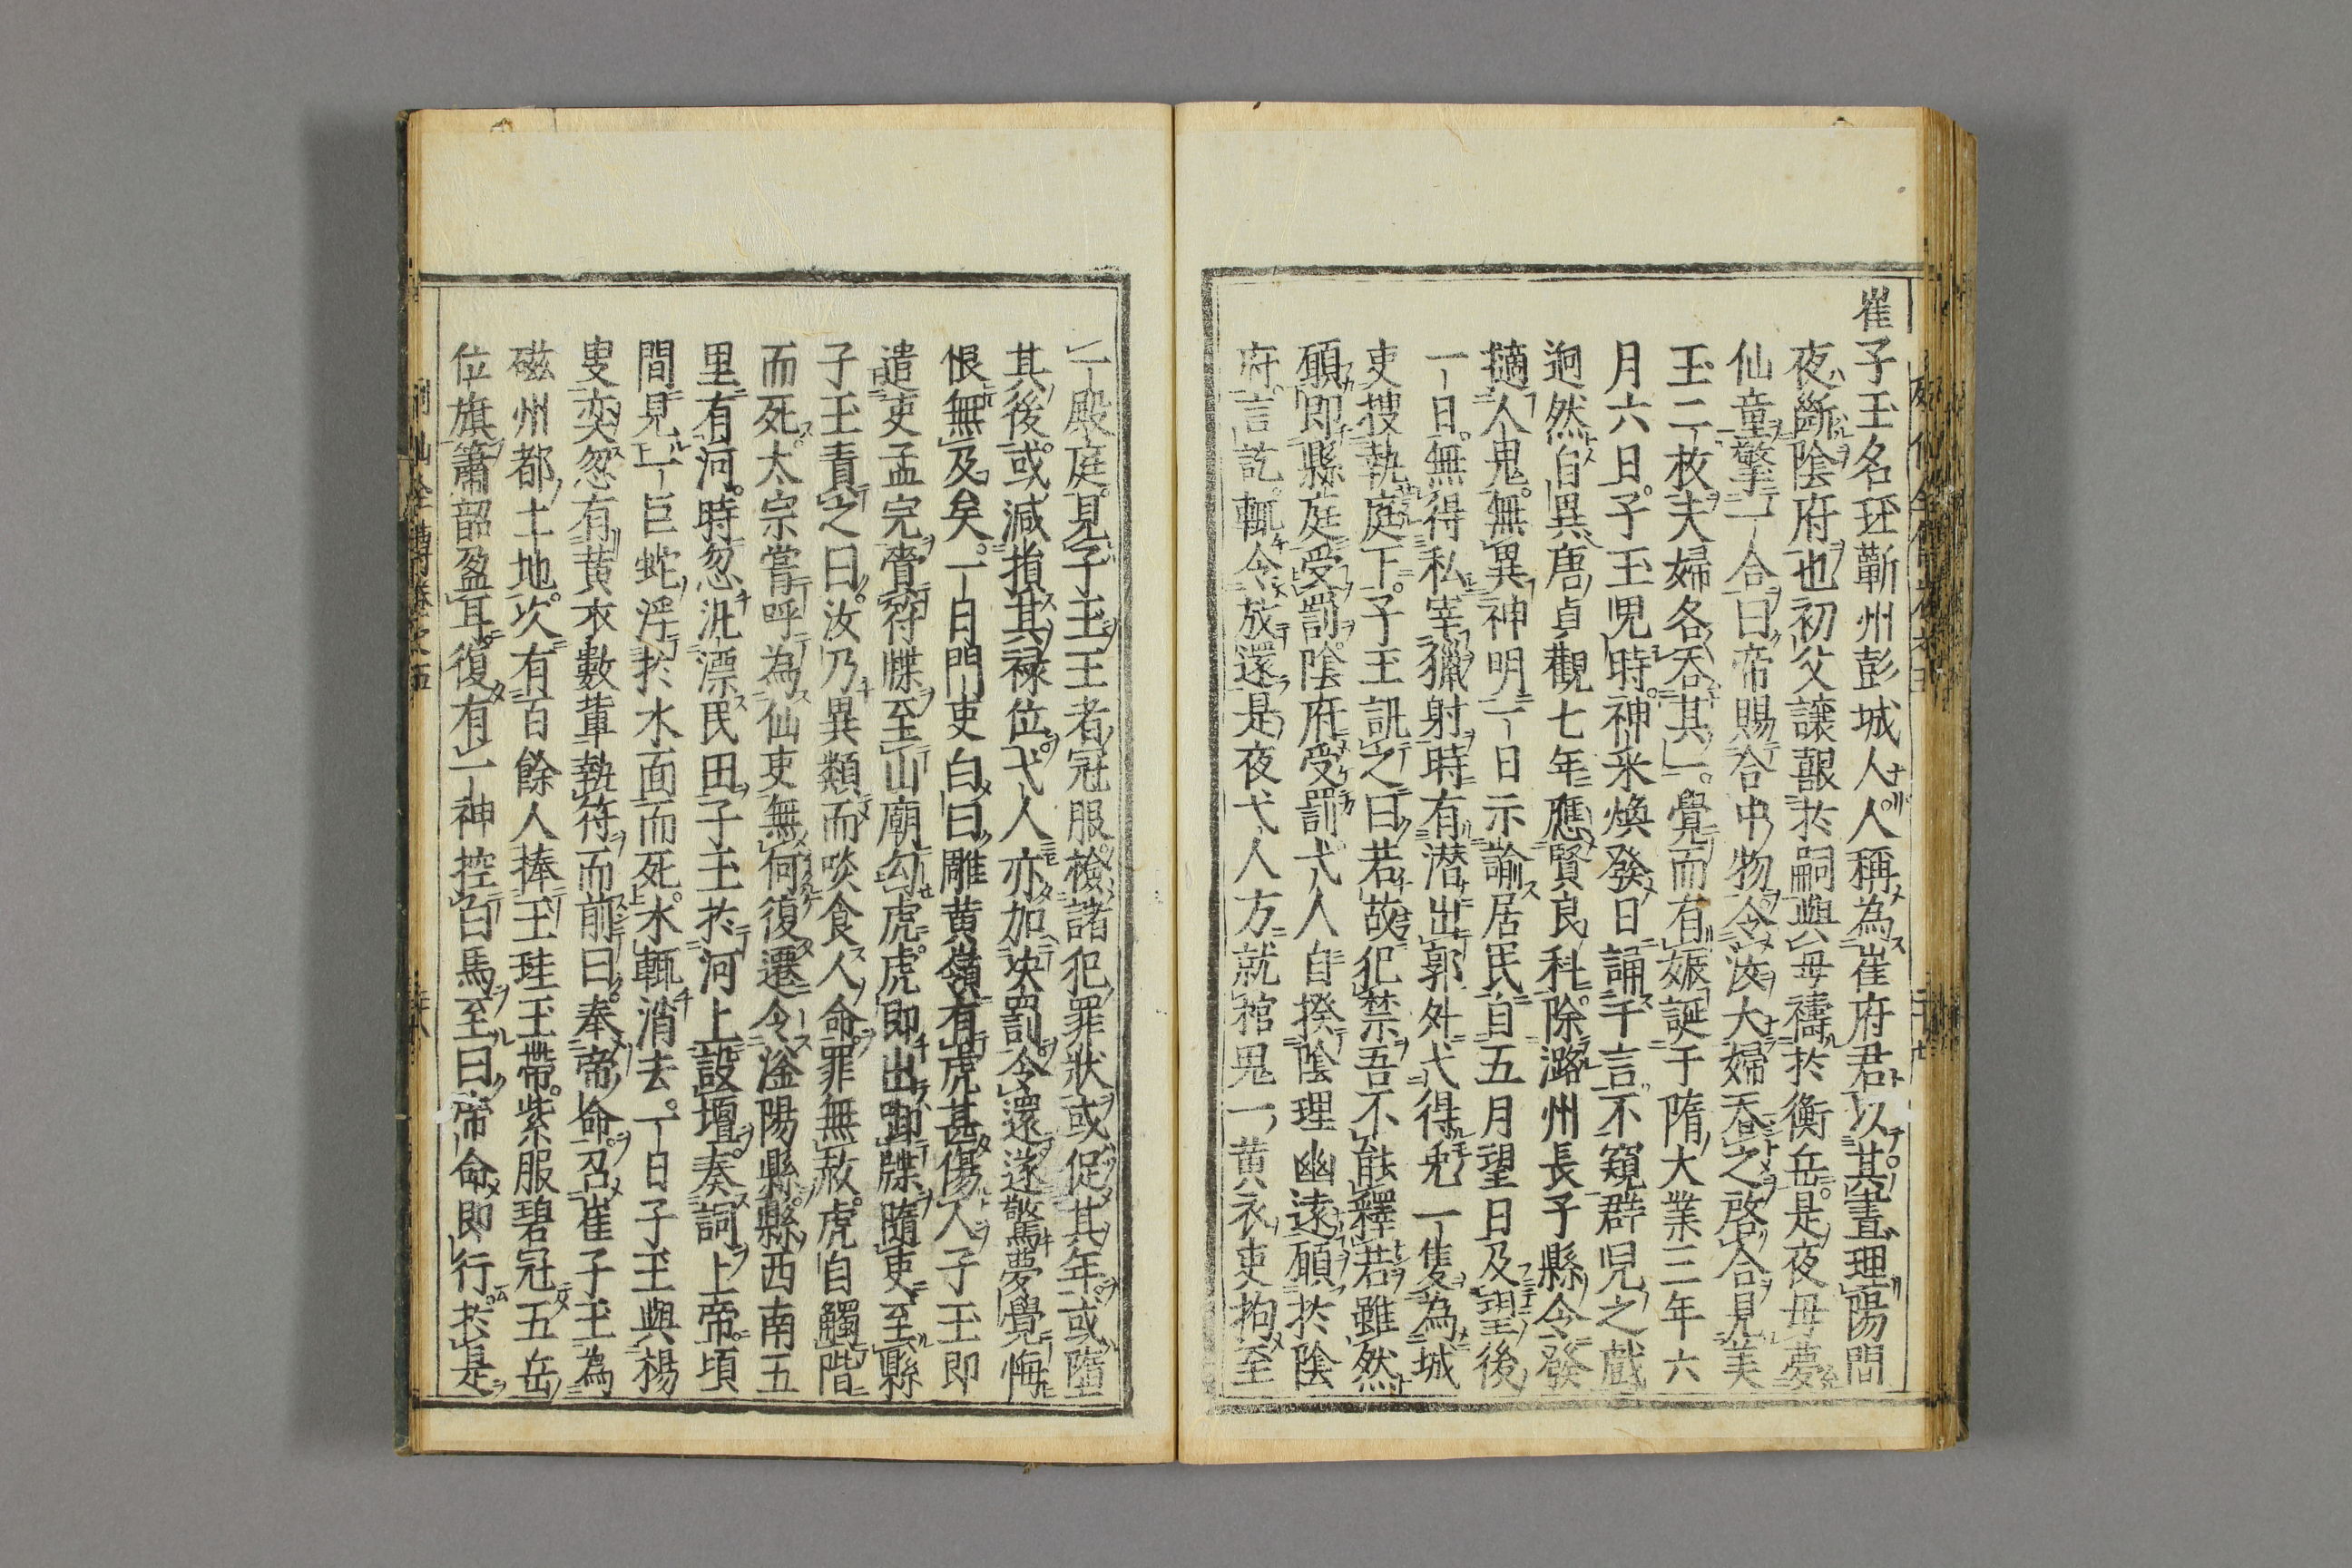 崔子玉名珏蘄州彭城人人稱為崔府君以其晝理陽間
夜斷陰府也初父讓艱於嗣與母禱於衡岳是夜母夢
仙童擎一合曰帝賜合中物令汝大婦吞之啓合見美
玉二枚夫婦各吞其一覺而有娠誕于隋大業三年六
月六日子玉兒時神采煥發日誦千言不窺群兒之戲
迥然自異唐貞觀七年應賢良科除潞州長子縣令發
擿人鬼無異神明一日示諭居民自五月望日及望後
一日無得私宰獵射時有潛出郭外弋得兎一隻為城
吏搜執庭下子玉訊之曰若故犯禁吾不能釋君雖然
願即縣庭受罰陰府受罰弋人自揆陰理幽遠願於陰
府言訖輒令放還是夜弋人方就棺見一黃衣吏拘至
一殿庭見子玉王者冠服檢諸犯罪狀或促其年或墮
其後或減損其祿位弋人亦加决罰令還遂驚夢覺悔
恨無及矣一日門吏白曰雕黃嶺有虎甚傷人子玉即
遣吏孟完齎符牒至山廟勾虎虎即出啣牒隨吏至縣
子玉責之曰汝乃異類而啖食人命罪無赦虎自觸階
而死太宗嘗呼為仙吏無何復遷令滏陽縣縣西南五
里有河時忽汎漂民田子玉於河上設壇奏詞上帝頃
間見一巨蛇浮於水面而死水輒消去一日子玉與楊
叟奕忽有黃衣數輩執符而前曰奉帝命召崔子玉為
磁州都土地次有百餘人捧玉珪玉帶紫服碧冠五岳
位旗簫韶盈耳復有一神控白馬至曰帝命即行於是